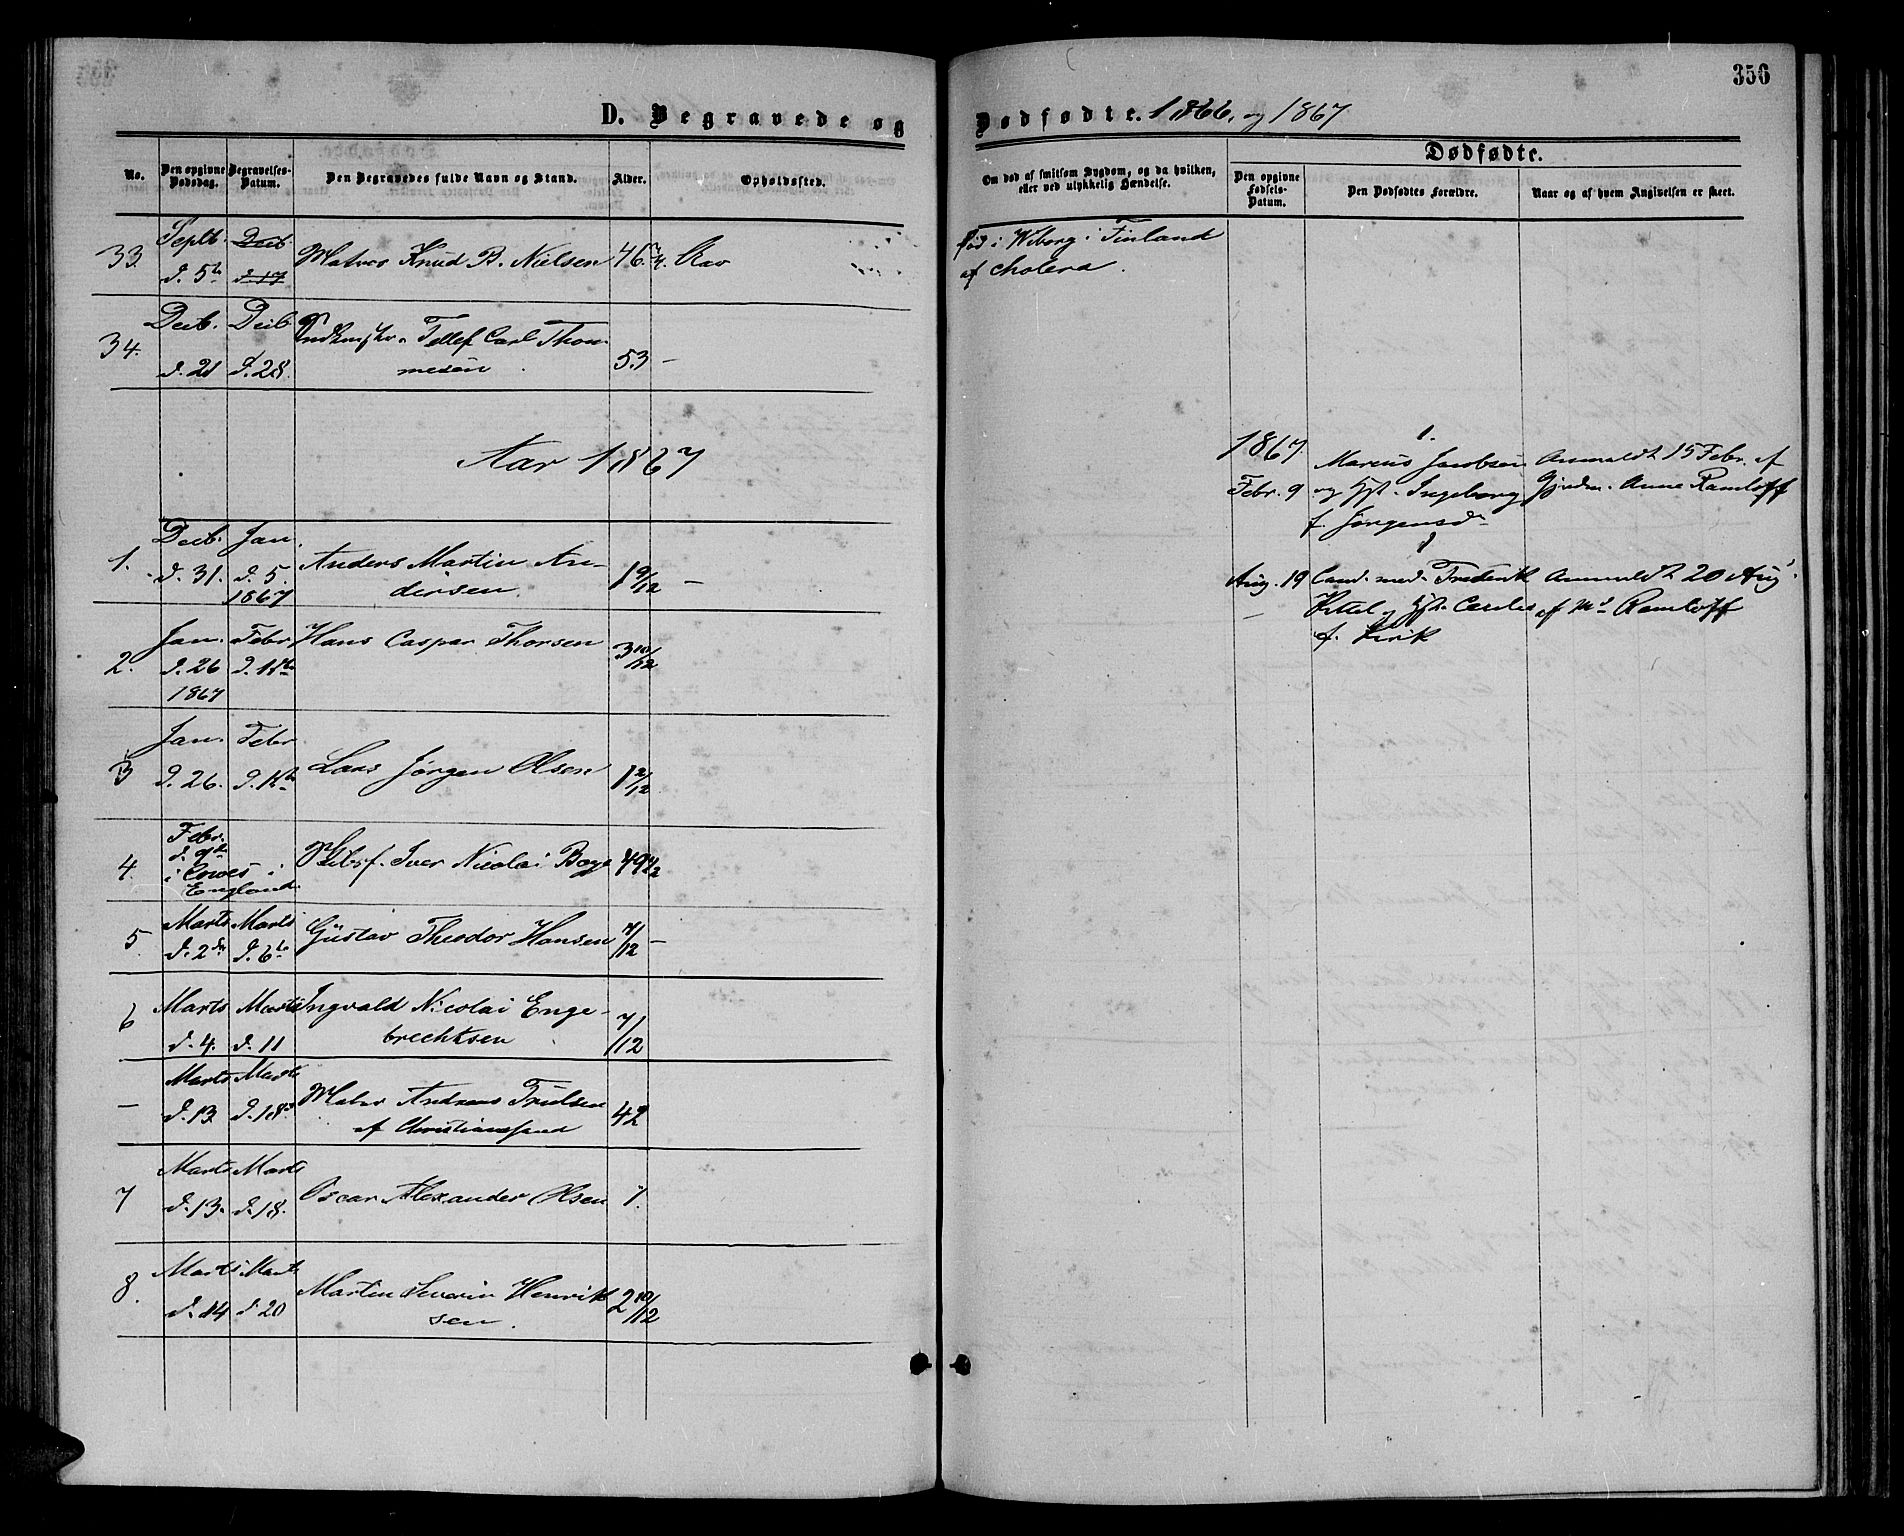 356
D. Begravede og
Dødfødte. 1866, og 1867
No.
Den opgivne Dødsdag.
Begravelses-Datum.
Den Begravedes fulde Navn og Stand.
Alder.
Opholdssted.
Om død af smitsom Sygdom, og da hvilken,
eller ved ulykkelig Hændelse.
Dødfødte.
Den opgivne Fødsels-Datum.
Den Dødfødtes Forældre.
Naar og af hvem Angivelsen er skeet.
33. Septb. Decb. Matros Knud B. Nielsen 46
d. 5te d. 17
død i Wiborg i Finland
af Cholera.
34. Decb. Decb. Tellef Carl Thom-
d. 21 d. 28. mesen 53 –
Aar 1867
1. Decb. Jan. Anders Martin An-
d. 31. d. 5. dersen. 1 9/12 –
1867
2. Jan. Febr Hans Caspar Thorsen 3 10/12
d. 26
1867
3 Jan. Febr Lars Jørgen Olsen 1 2/12
d. 26.
4. Febr.
d. 9de
i Cowes i Iver Nicolai Boye 49
England.
5. Marts Marts Gustav Theodor Hansen 7/12 –
d. 2den d. 6te
6 Marts Marts Ingvald Nicolai Enge-
d. 4. d. 11 brechtsen 7/12
– Marts Marts Andreas Trulsen
d. 13 d. 18. af Christianssand 42
7 Marts Marts Oscar Alexander Olsen 1.
d. 13. d. 18.
8. Marts Marts Martin Severin Henrik
d. 14 d. 20 sen. 2 10/12
1867 1.
Febr. 9 Marcus Jacobsen Anmeldt 15 Febr. af
og Hst. Ingeborg Gjordm. Anne Ramløff
f. Jørgensd.
Aug. 19 Cand. med. Frederik Anmeldt 20 Aug.
Kittel og Hst. af Md. Ramløff
f. Kirik